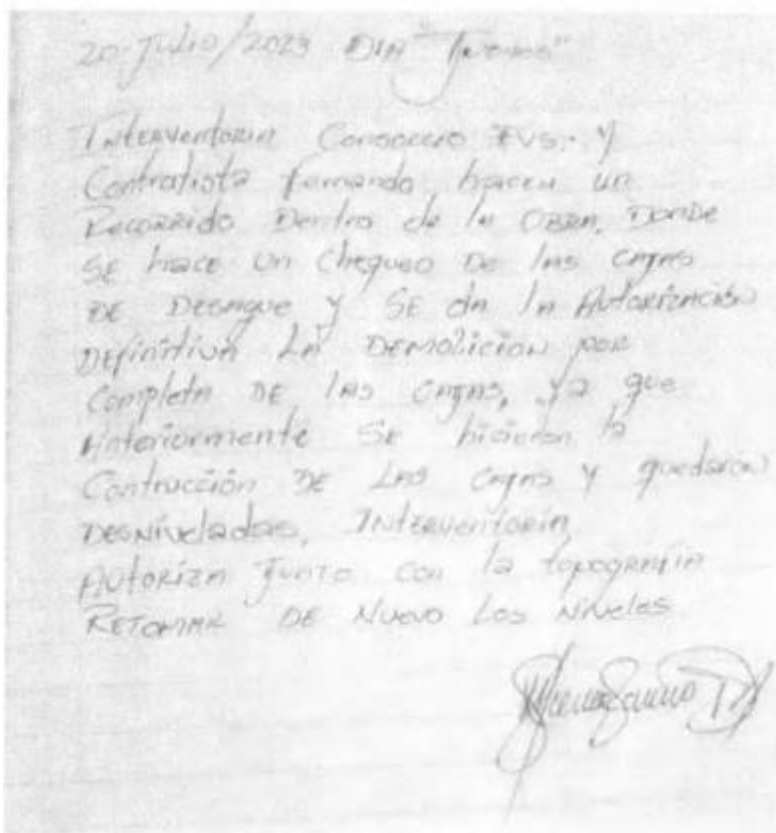 20-Julio/2023 DIA "Jueves"
Interventoria Consorcio EVS. y
Contratista Fernando hacen un
Recorrido Dentro de la OBRA, DONDE
SE hace un chequeo DE las cajas
DE Desague y SE da la Autorización
Definitiva LA DEMOLICION por
Completa DE las CAJAS, ya que
Anteriormente Se hicieron la
Contrucción DE LAS CAJAS y quedaron
DESNiveladas, INTERVENTORIA
AUTORIZA JUNTO con la topografia
RETOMAR DE Nuevo Los Niveles